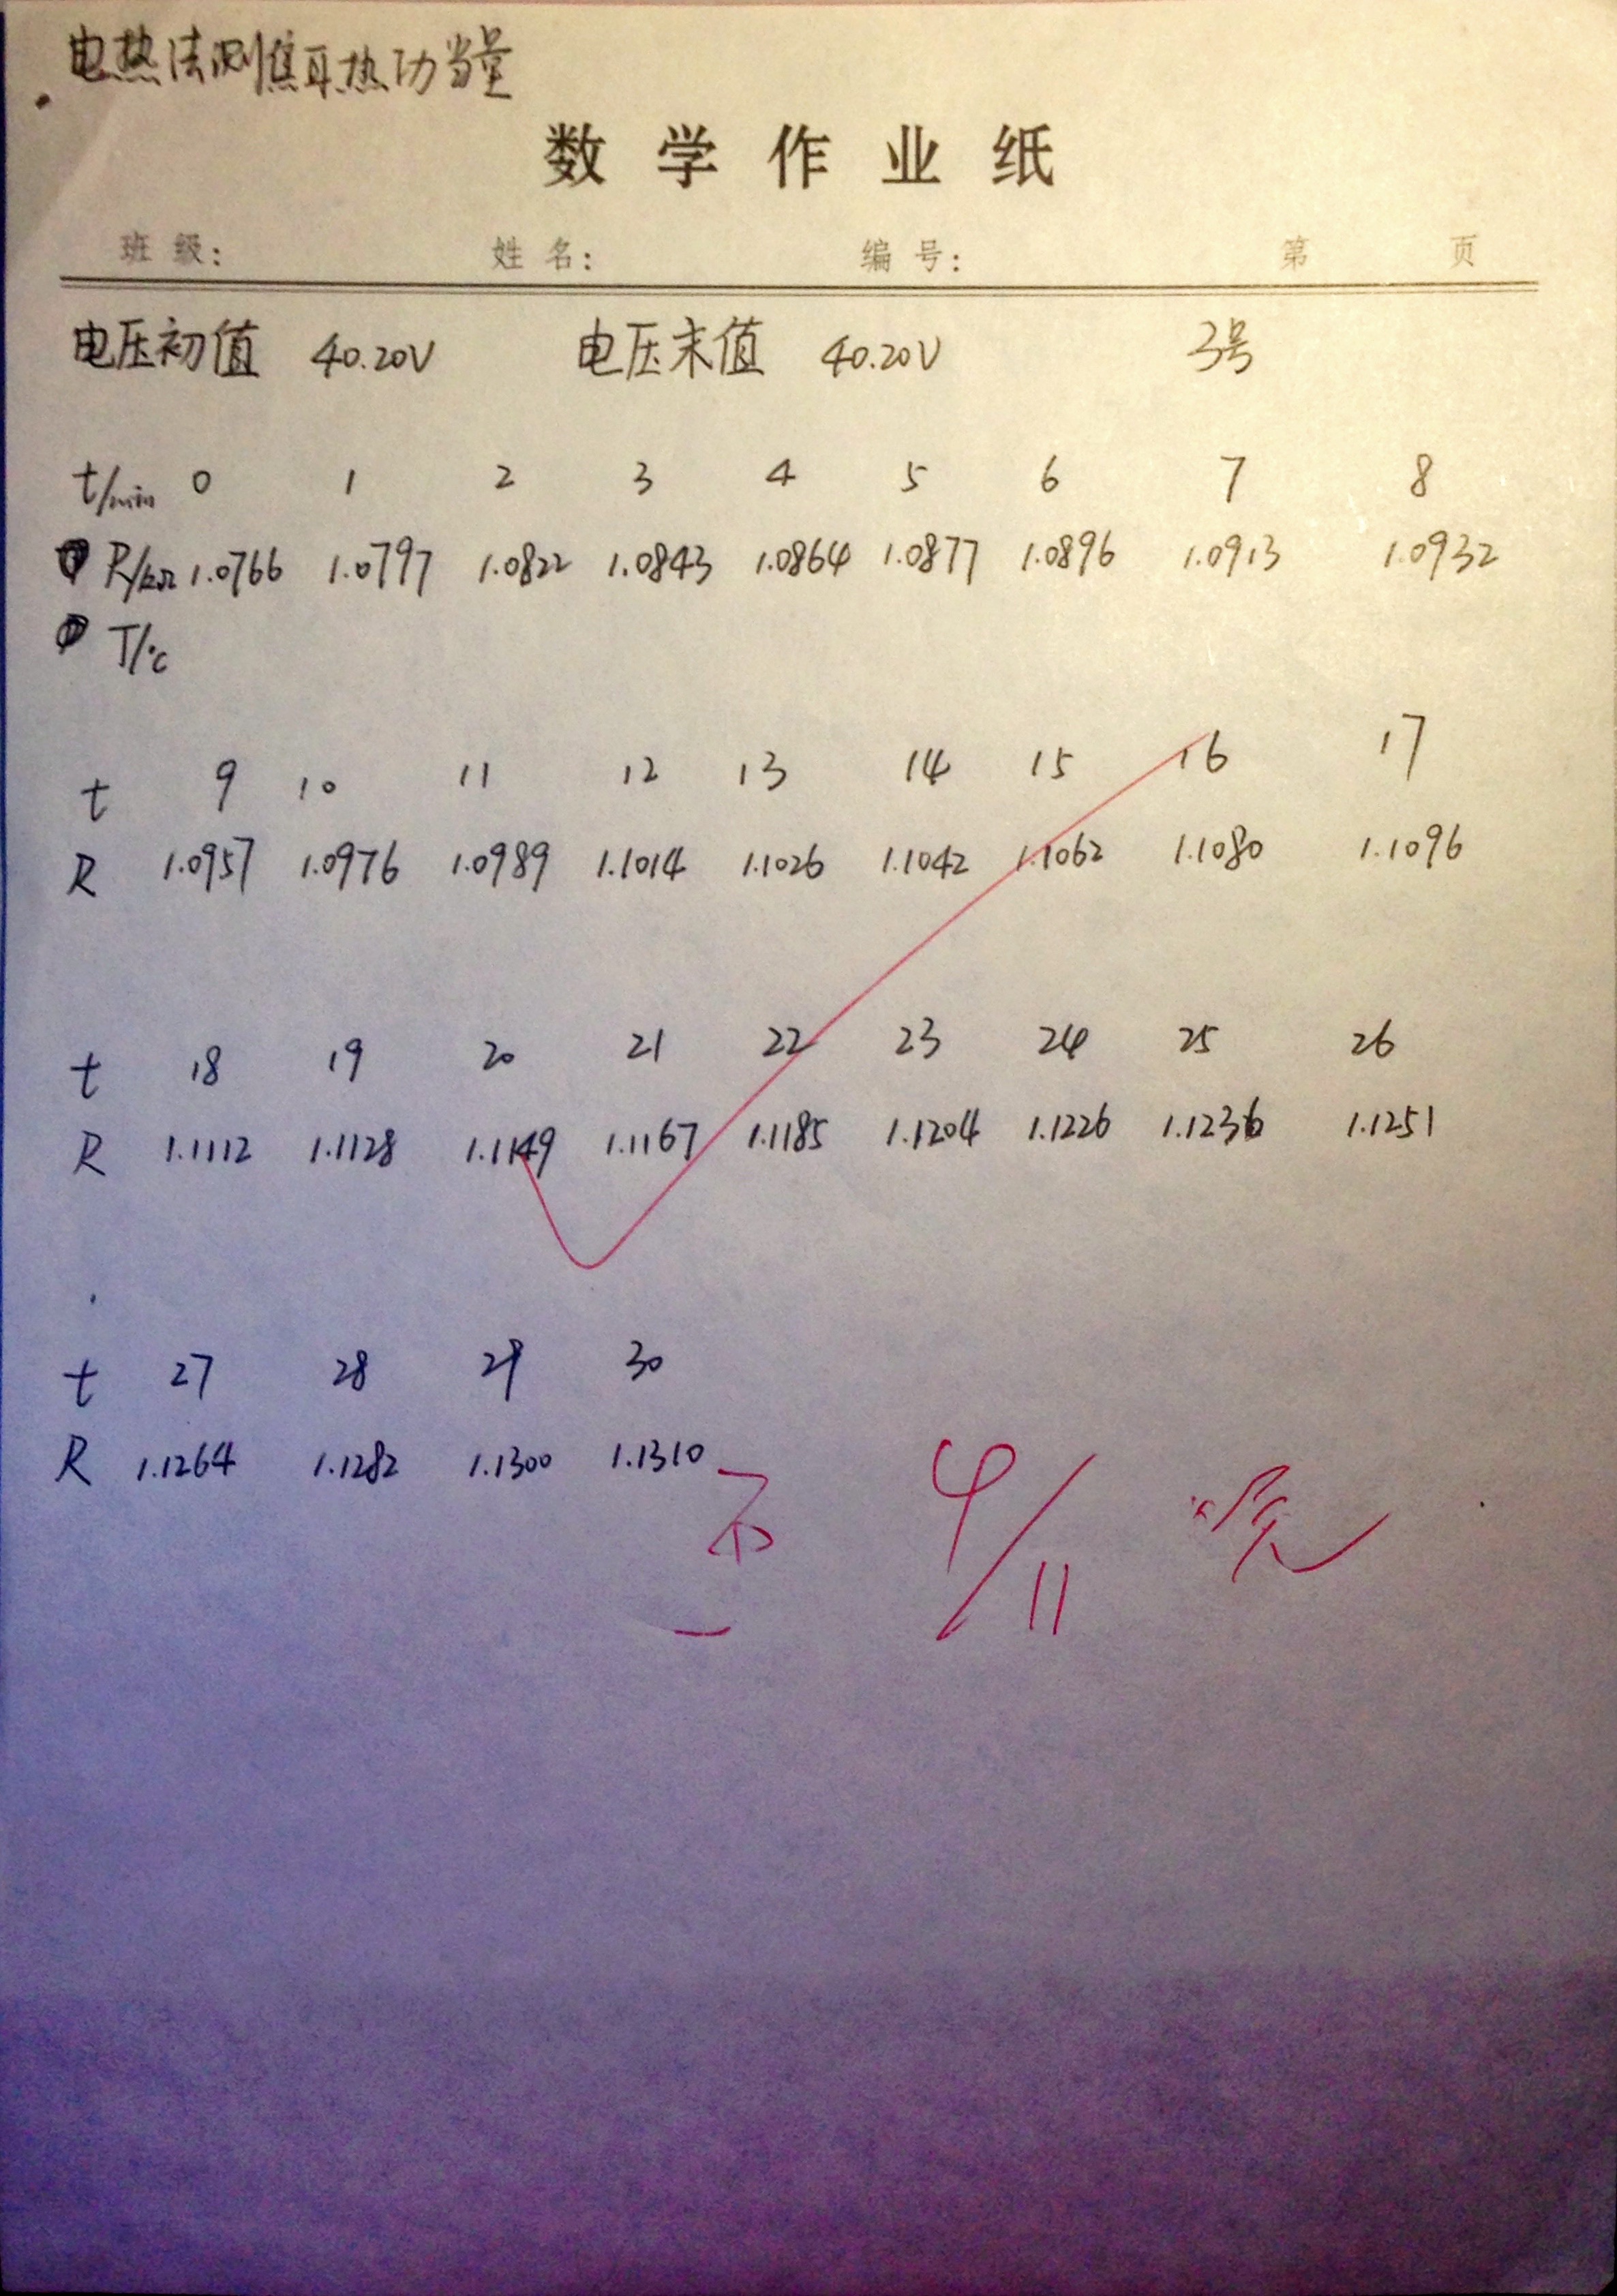 电热法测焦耳热功当量
数学作业纸
班级: 姓名: 编号: 第 页
电压初值 40.20V 电压末值 40.20V 3号
t/min 0 1 2 3 4 5 6 7 8
R/kΩ 1.0766 1.0797 1.0822 1.0843 1.0864 1.0877 1.0896 1.0913 1.0932
T/°C
t 9 10 11 12 13 14 15 16 17
R 1.0957 1.0976 1.0989 1.1014 1.1026 1.1042 1.1062 1.1080 1.1096
t 18 19 20 21 22 23 24 25 26
R 1.1112 1.1128 1.1149 1.1167 1.1185 1.1204 1.1226 1.1236 1.1251
t 27 28 29 30
R 1.1264 1.1282 1.1300 1.1310